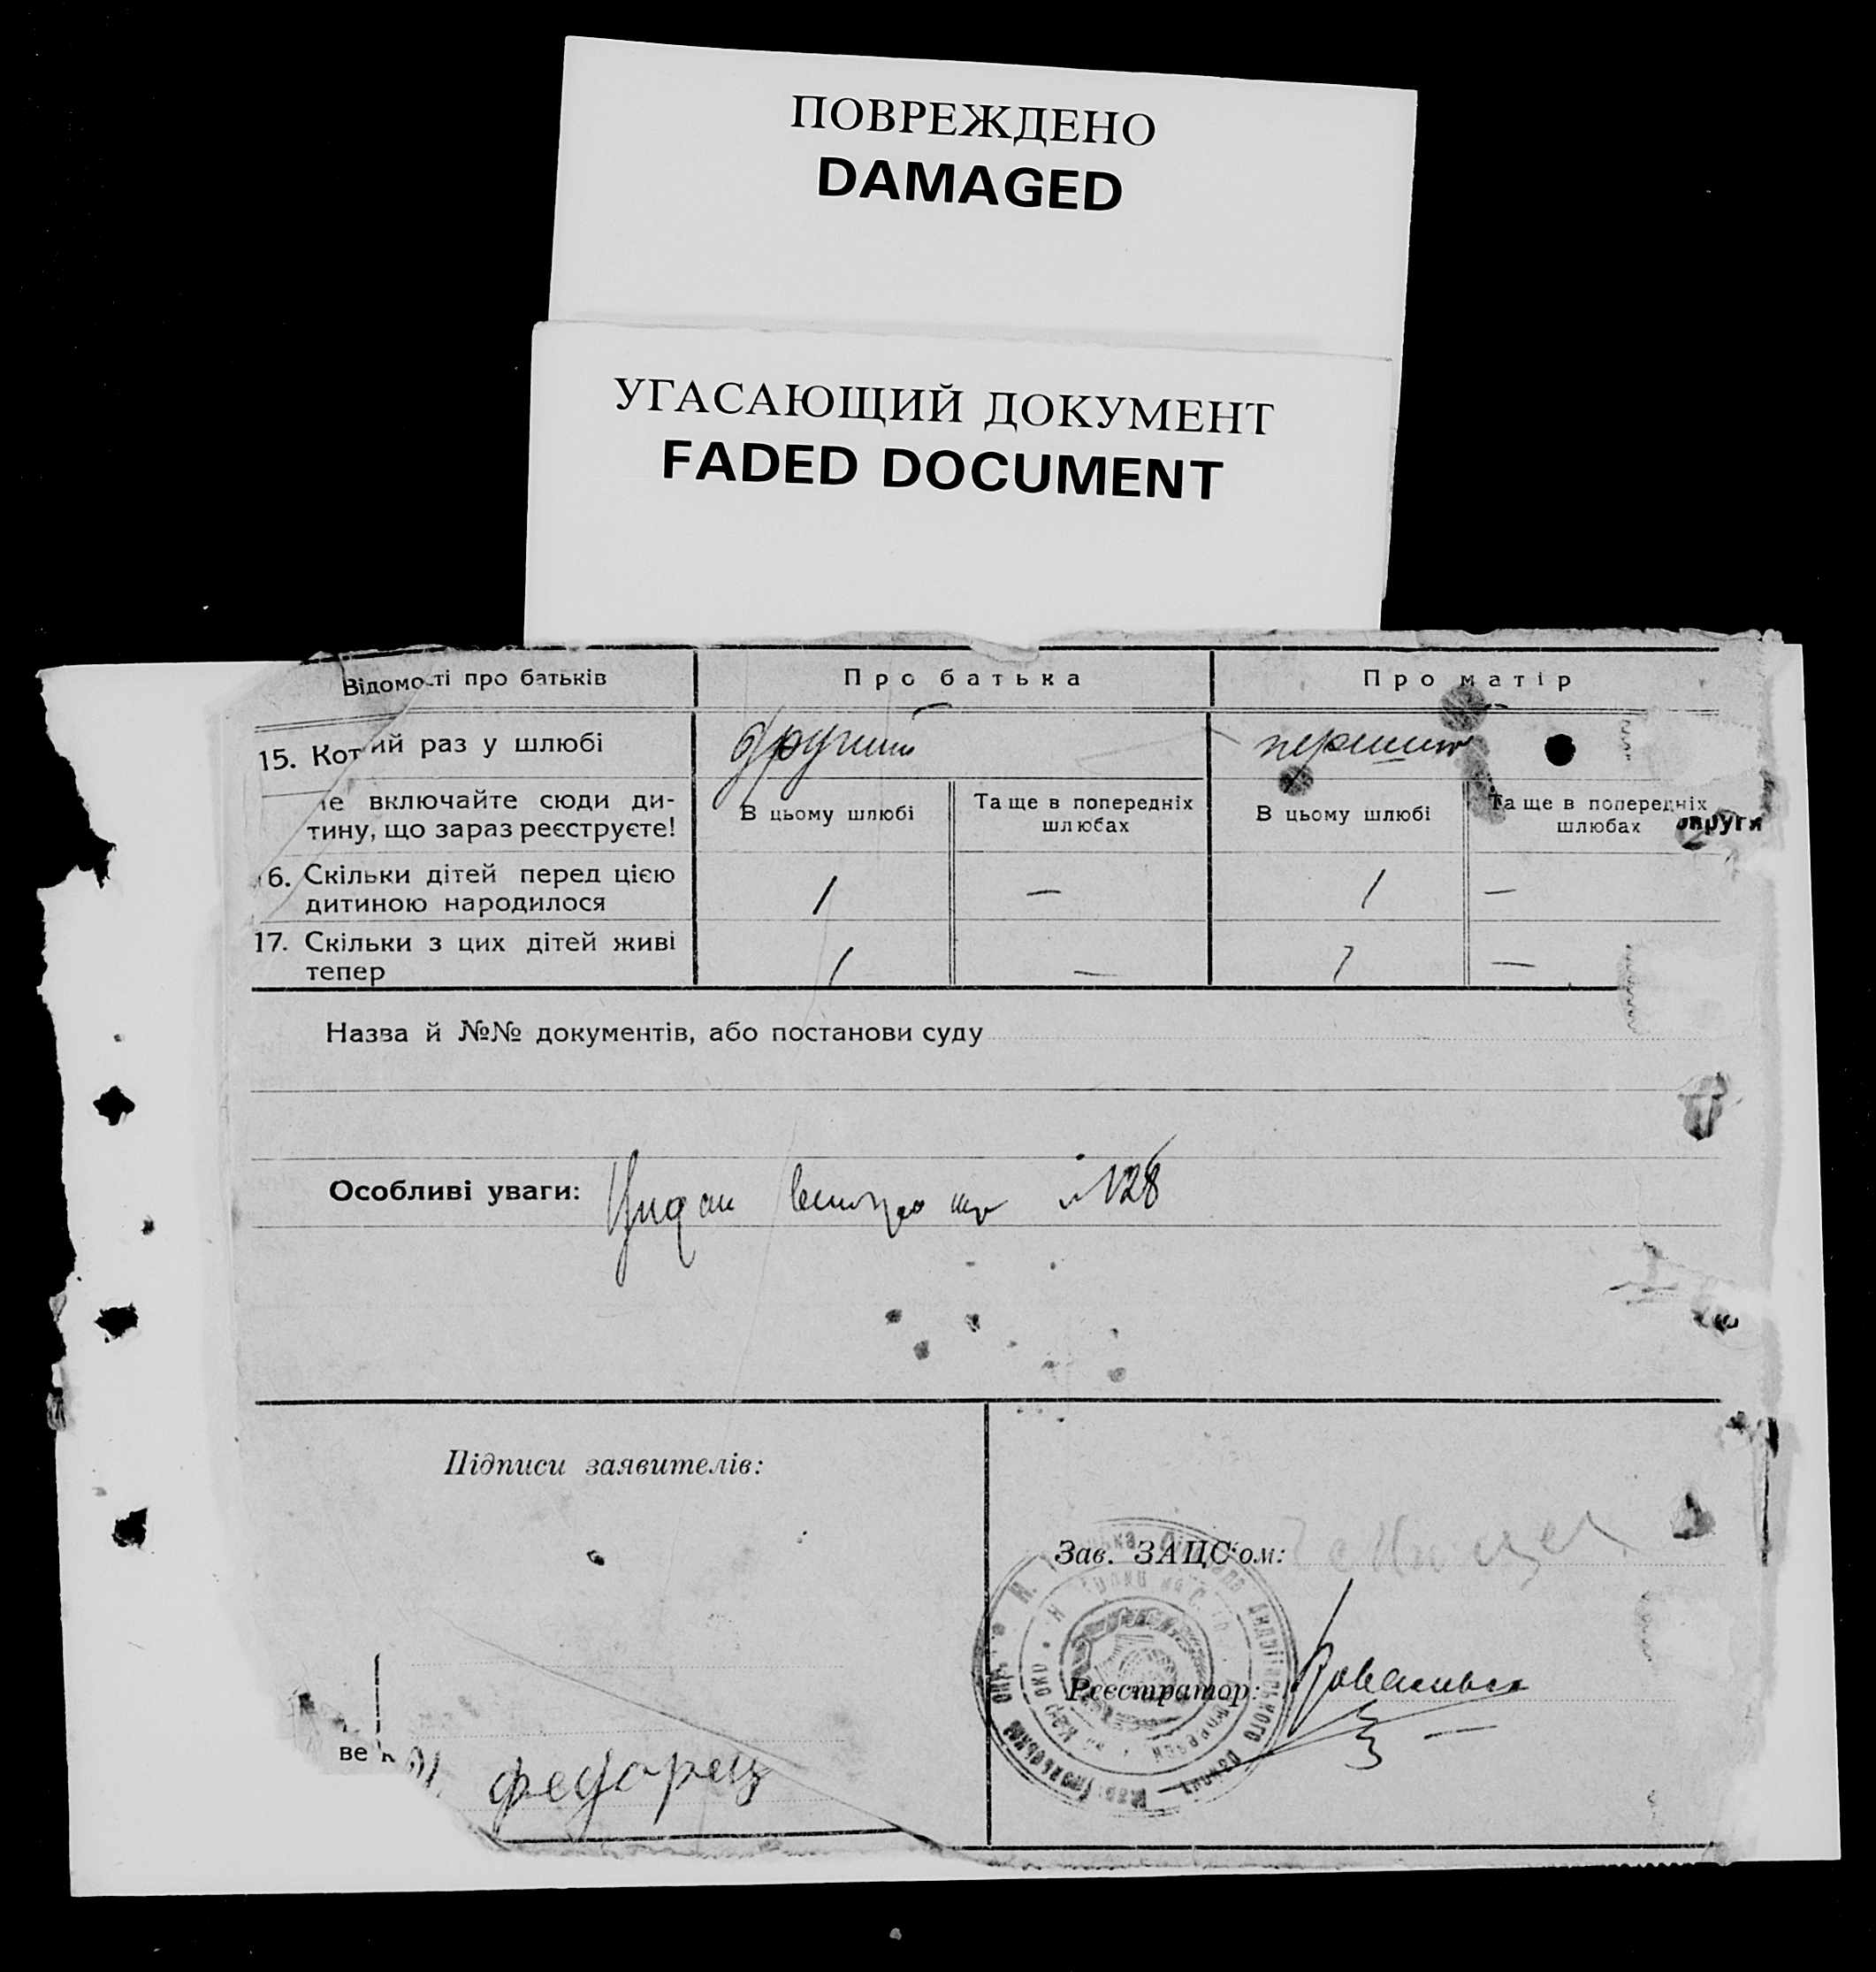 ПОВРЕЖДЕНО
DAMAGED
УГАСАЮЩИЙ ДОКУМЕНТ
FADED DOCUMENT
Відомості про батьків Про батька Про матір
15. Котрий раз у шлюбі другий перший
не включайте сюди ди- В цьому шлюбі Та ще в попередніх В цьому шлюбі Та ще в попередніх
тину, що зараз реєструєте! шлюбах шлюбах округи
16. Скільки дітей перед цією 1 — 1 —
дитиною народилося
17. Скільки з цих дітей живі 1 — 1 —
тепер
Назва й №№ документів, або постанови суду
Особливі уваги: № 128
Підписи заявителів:
Зав. ЗАЦС'ом:
Реєстратор:
ве
Федорец